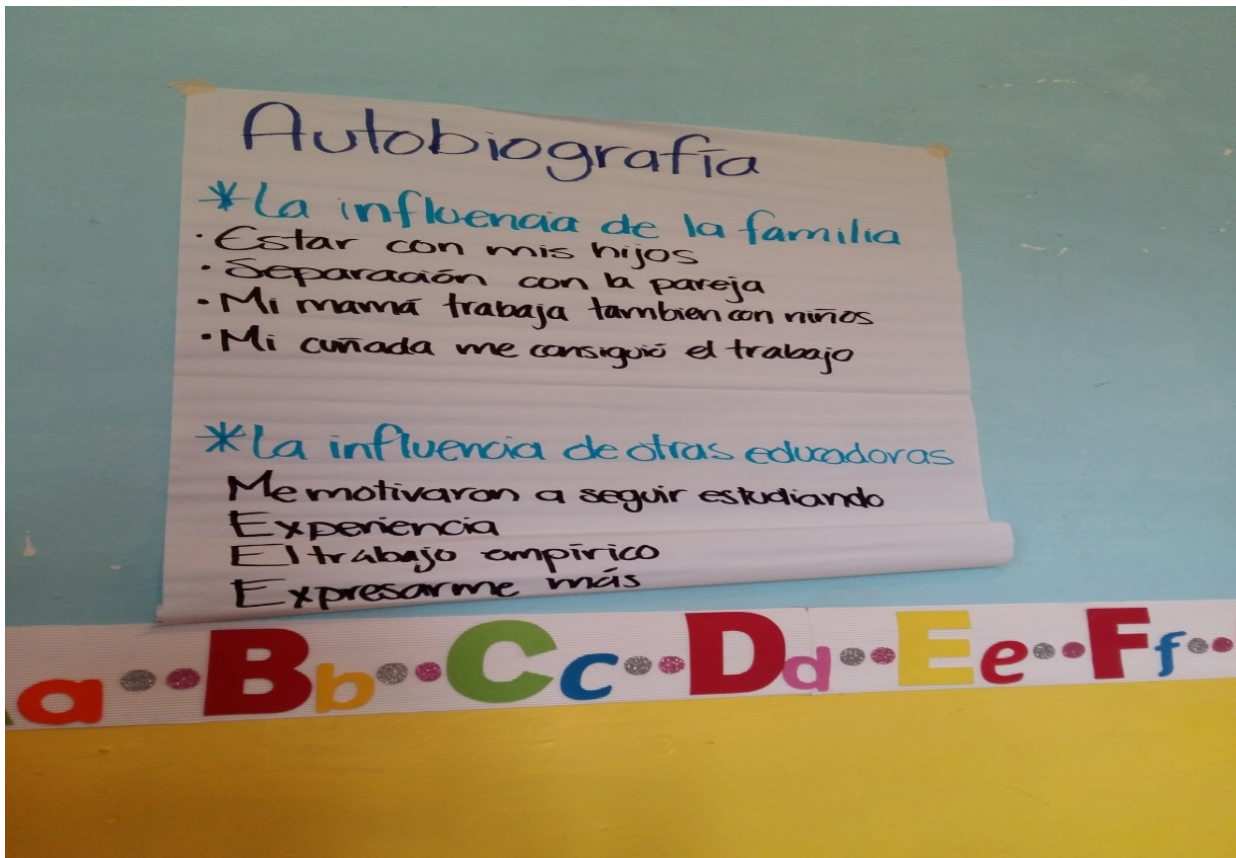 Autobiografía
*La influencia de la familia
· Estar con mis hijos
· Separación con la pareja
· Mi mamá trabaja tambien con niños
· Mi cuñada me consiguió el trabajo
*La influencia de otras educadoras
Me motivaron a seguir estudiando
Experiencia
El trabajo empírico
Expresarme más
a B b C c D d E e F f